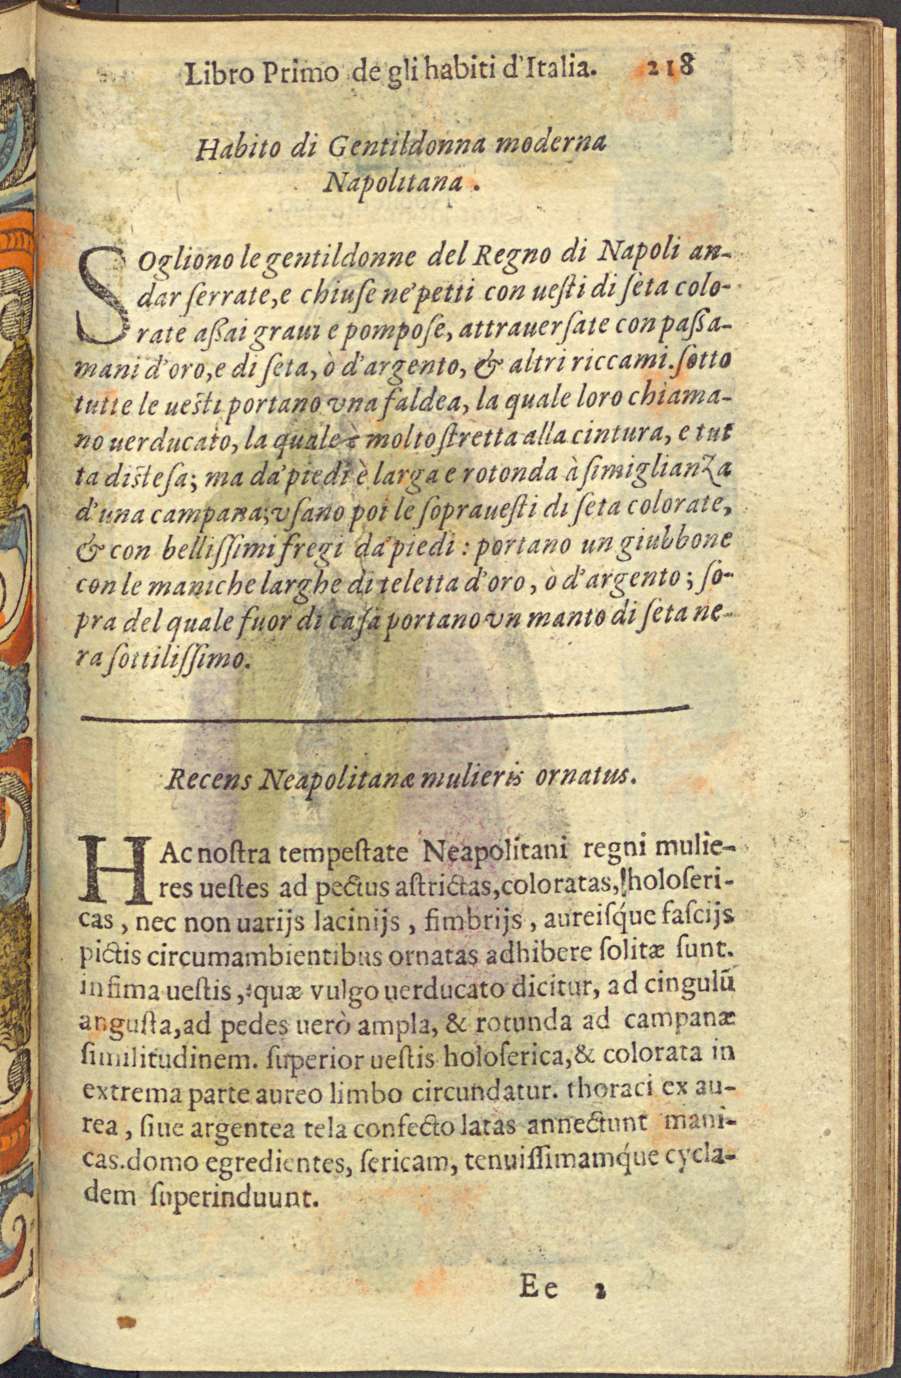 Libro Primo de gli habiti d'Italia. 218
Habito di Gentildonna moderna
Napolitana.
SOgliono le gentildonne del Regno di Napoli an-
dar ſerrate, e chiuſe ne' petti con ueſti di ſeta colo-
rate aſſai graui e pompoſe, attrauerſate con paſſa-
mani d'oro, e di ſeta, ò d'argento, & altri riccami. ſotto
tutte le ueſti portano vna faldea, la quale loro chiama-
no uerducato, la quale è molto ſtretta alla cintura, e tut
ta diſteſa; ma da' piedi è larga e rotonda à ſimiglianza
d'una campana; vſano poi le ſopraueſti di ſeta colorate,
& con belliſſimi fregi da' piedi: portano un giubbone
con le maniche larghe di teletta d'oro, ò d'argento; ſo-
pra del quale fuor di caſa portano vn manto di ſeta ne-
ra ſottiliſſimo.
Recens Neapolitanæ mulieris ornatus.
HAc noſtra tempeſtate Neapolitani regni mulie-
res ueſtes ad pectus aſtrictas, coloratas, holoſeri-
cas, nec non uarijs lacinijs, fimbrijs, aureiſq́ue faſcijs
pictis circumambientibus ornatas adhibere ſolitæ ſunt.
infima ueſtis, quæ vulgo uerducato dicitur, ad cingulū
anguſta, ad pedes uerò ampla, & rotunda ad campanæ
ſimilitudinem. ſuperior ueſtis holoſerica, & colorata in
extrema parte aureo limbo circundatur. thoraci ex au-
rea, ſiue argentea tela confecto latas annectunt mani-
cas. domo egredientes, ſericam, tenuiſſimamq́ue cycla-
dem ſuperinduunt.
Ee 2